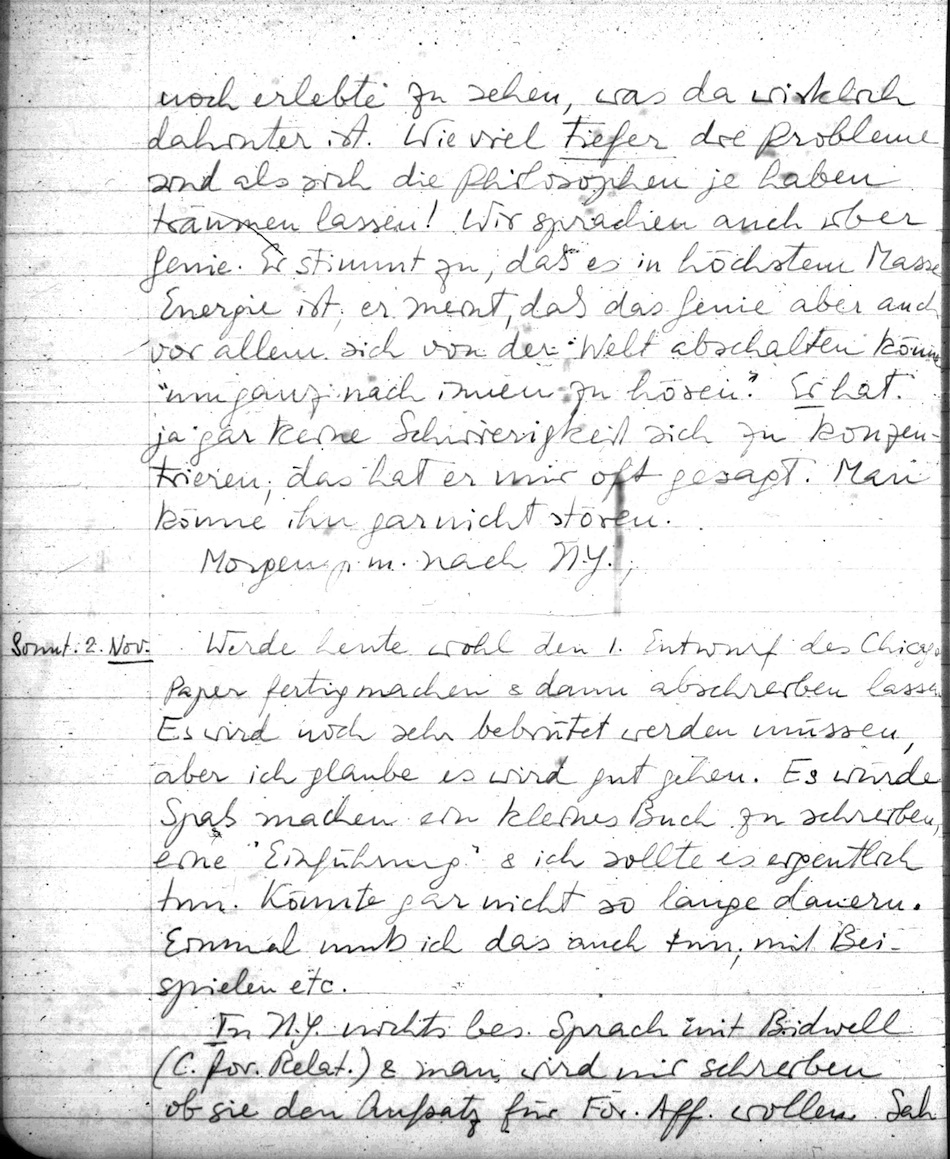 noch erlebte zu sehen, was da wirklich
dahinter ist. Wie viel tiefer die Probleme
sind als sich die Philosophen je haben
träumen lassen! Wir sprachen auch über
Genie. Er stimmt zu, daß es in höchstem Masse
Energie ist, er meint, daß das Genie aber auch
vor allem sich von der Welt abschalten könne
"um ganz nach innen zu hören". Er hat
ja gar keine Schwierigkeit sich zu konzen-
trieren, das hat er mir oft gesagt. Man
könne ihn garnicht stören.
Morgen p.m. nach N.Y.
Sonnt. 2. Nov. Werde heute wohl den 1. Entwurf des Chicago
Paper fertig machen & dann abschreiben lassen
Es wird noch sehr bebrütet werden müssen,
aber ich glaube es wird gut gehen. Es würde
Spaß machen ein kleines Buch zu schreiben,
eine "Einführung" & ich sollte es eigentlich
tun. Könnte gar nicht so lange dauern.
Einmal muß ich das auch tun, mit Bei-
spielen etc.
In N.Y. nichts bes. Sprach mit Bidwell
(C. for. Relat.) & man wird mir schreiben
ob sie den Aufsatz für For. Aff. wollen. Sah